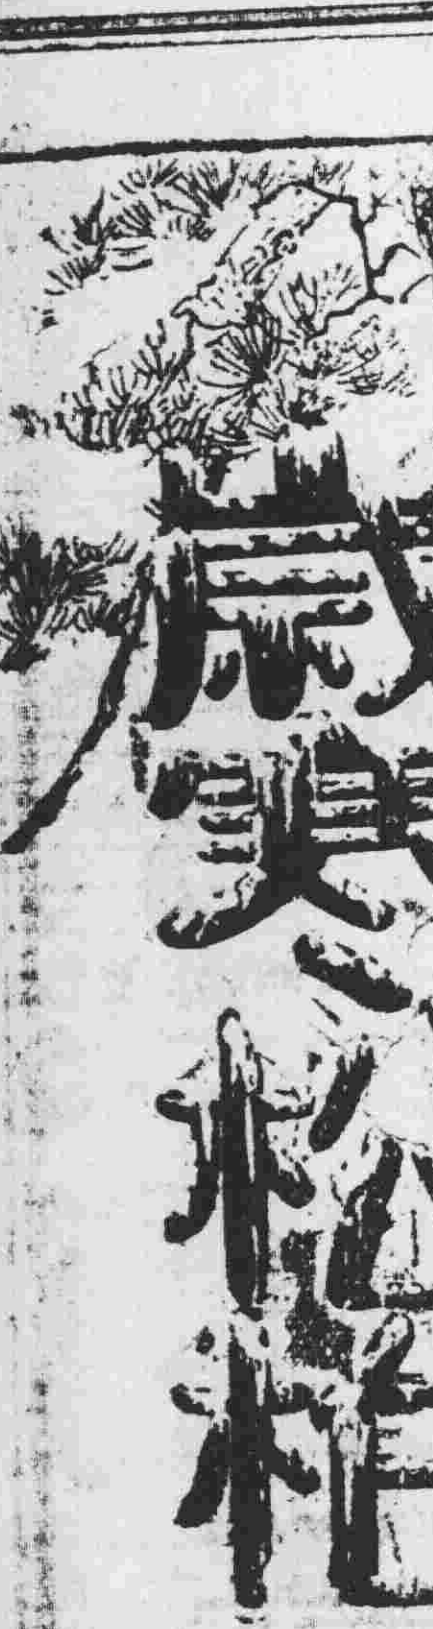 歲寒松柏